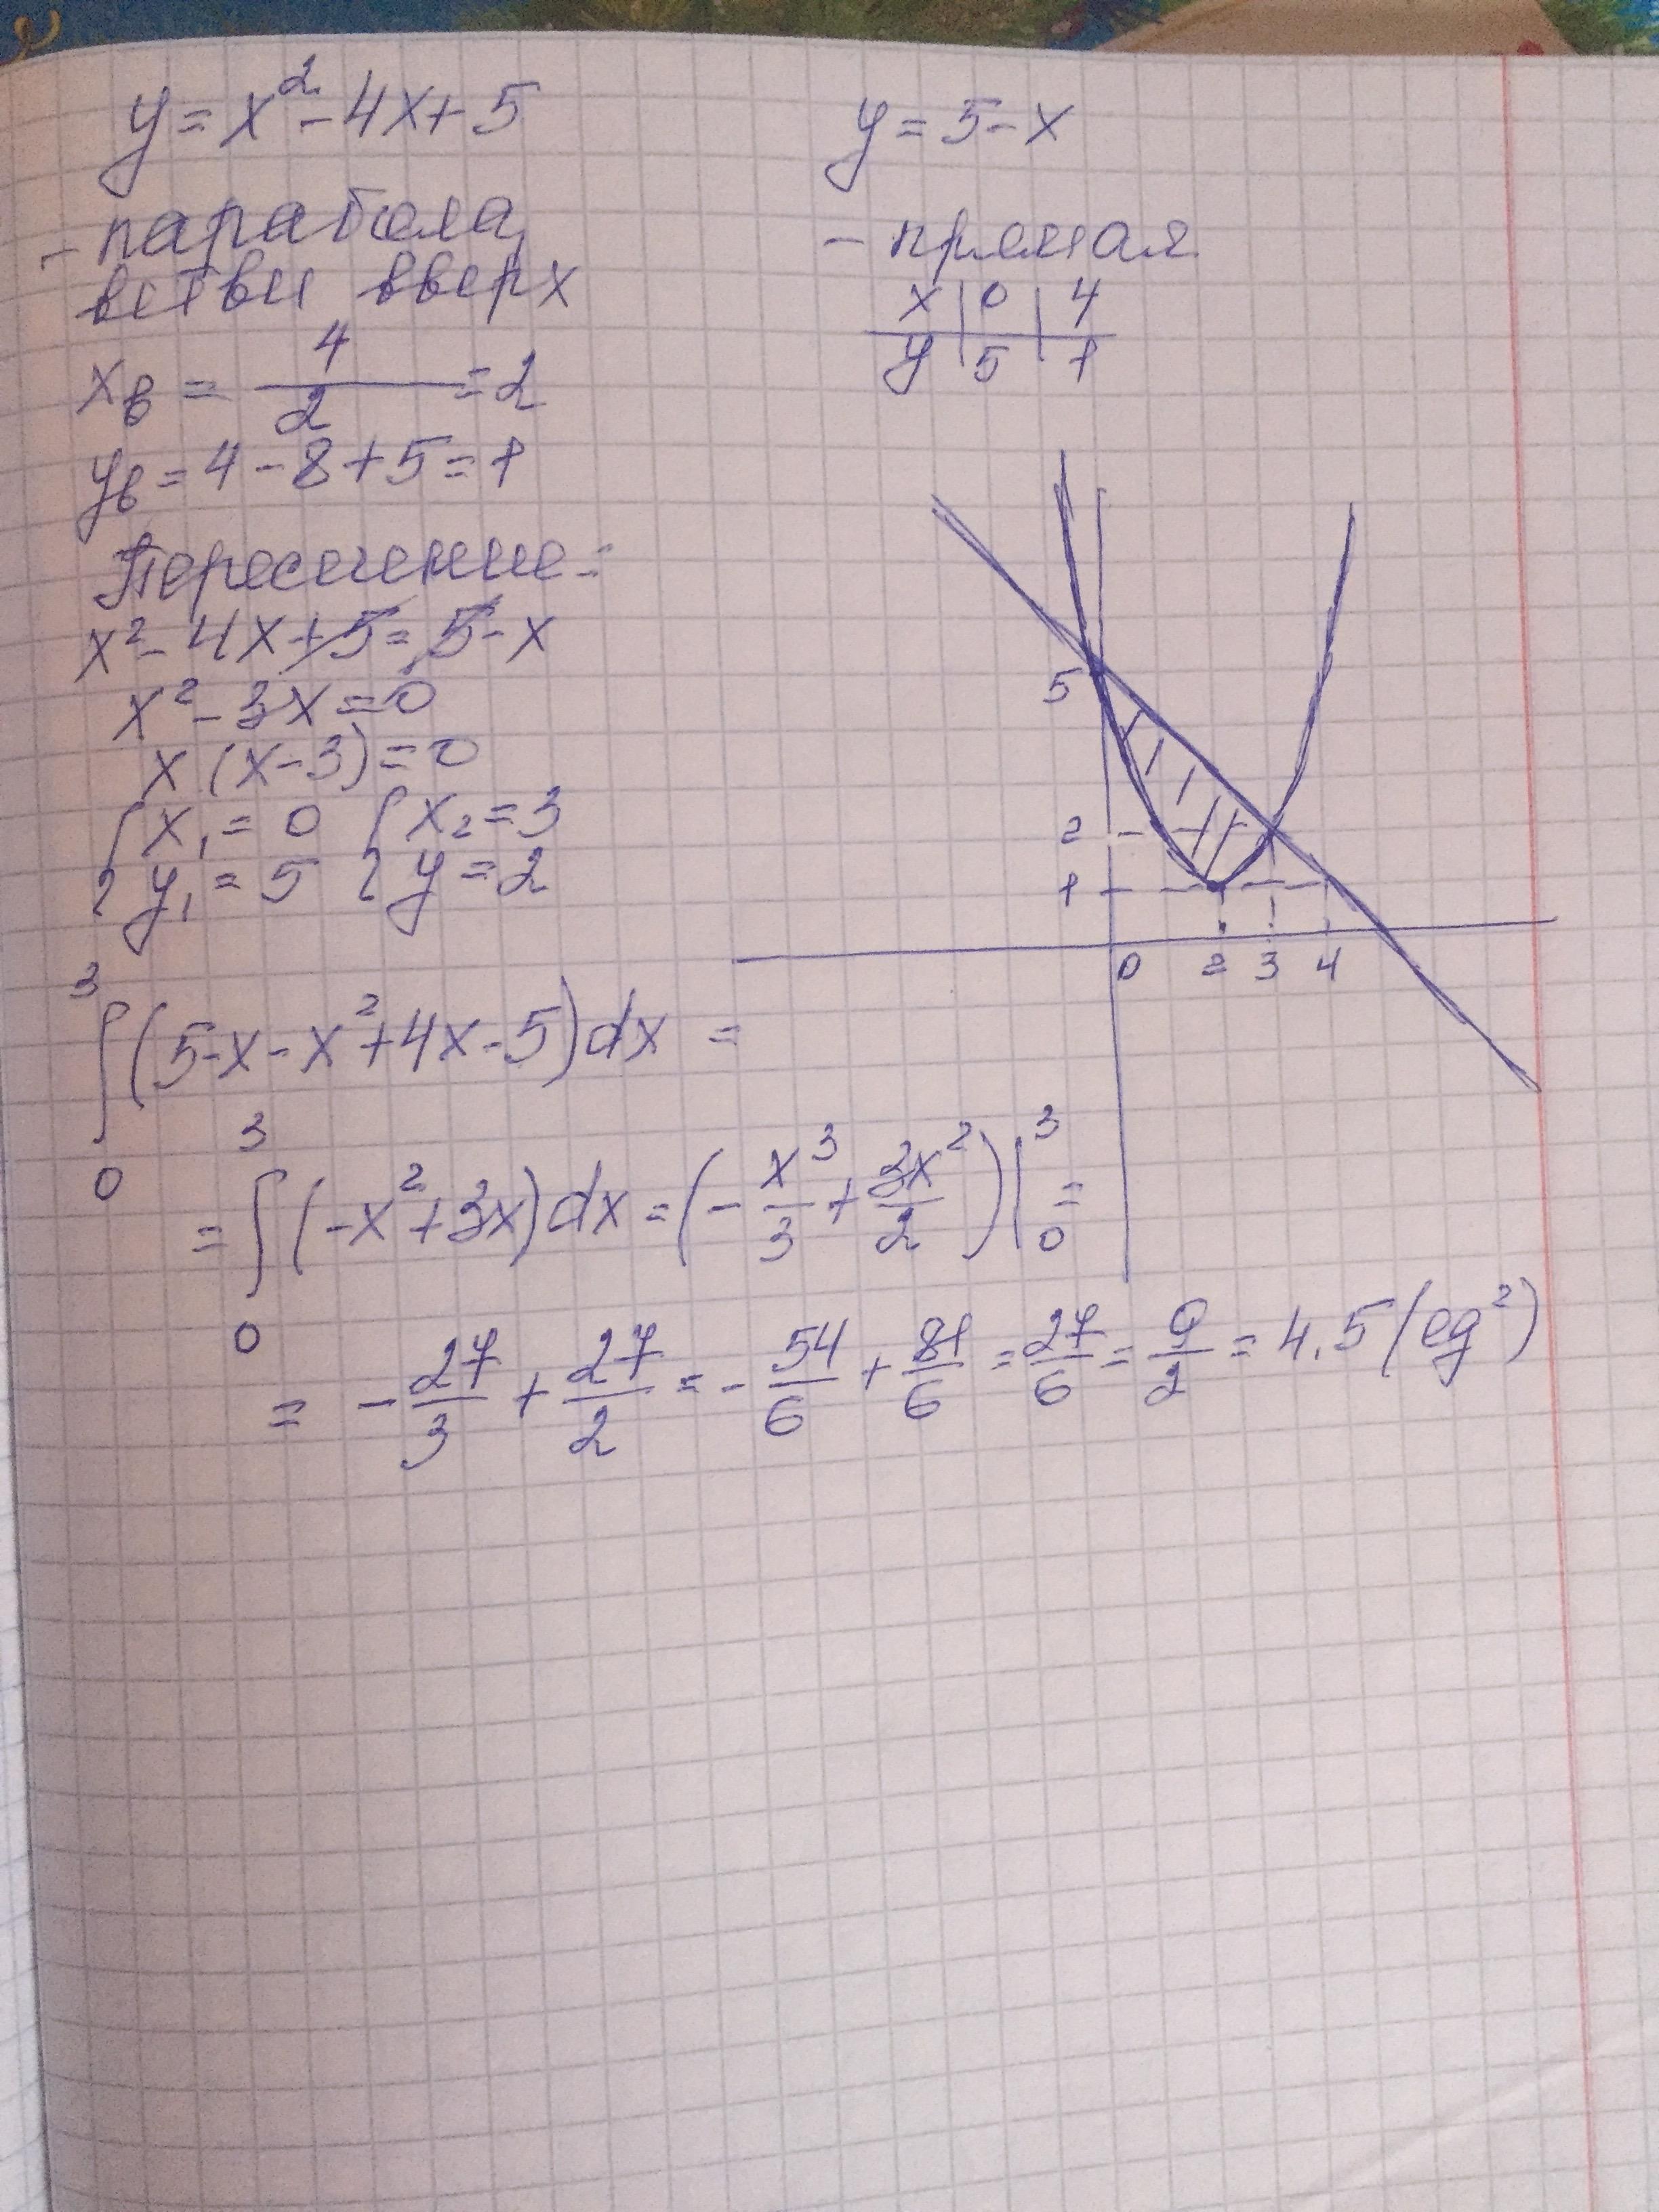 y = x² - 4x + 5
- парабола,
ветви вверх
xв = 4/2 = 2
yв = 4 - 8 + 5 = 1
Пересечение:
x² - 4x + 5 = 5 - x
x² - 3x = 0
x (x - 3) = 0
{ x₁ = 0 { x₂ = 3
{ y₁ = 5 { y = 2
y = 5 - x
- прямая
x | 0 | 4
y | 5 | 1
5
2
1
0 2 3 4
∫₀³ (5 - x - x² + 4x - 5) dx =
= ∫₀³ (-x² + 3x) dx = (- x³/3 + 3x²/2) |₀³ =
= - 27/3 + 27/2 = - 54/6 + 81/6 = 27/6 = 9/2 = 4,5 (ед²)